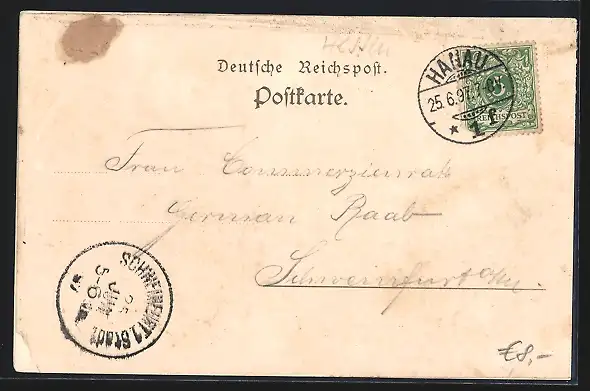 Hessen
Deutsche Reichspost.
Postkarte.
HANAU
25.6.97.
* 1 f
5
REICHSPOST
Frau Commerzienrat
German Raab
Schweinfurt a/M.
SCHWEINFURT 1. Stadt
25
JUN
5-6
97
€8,-